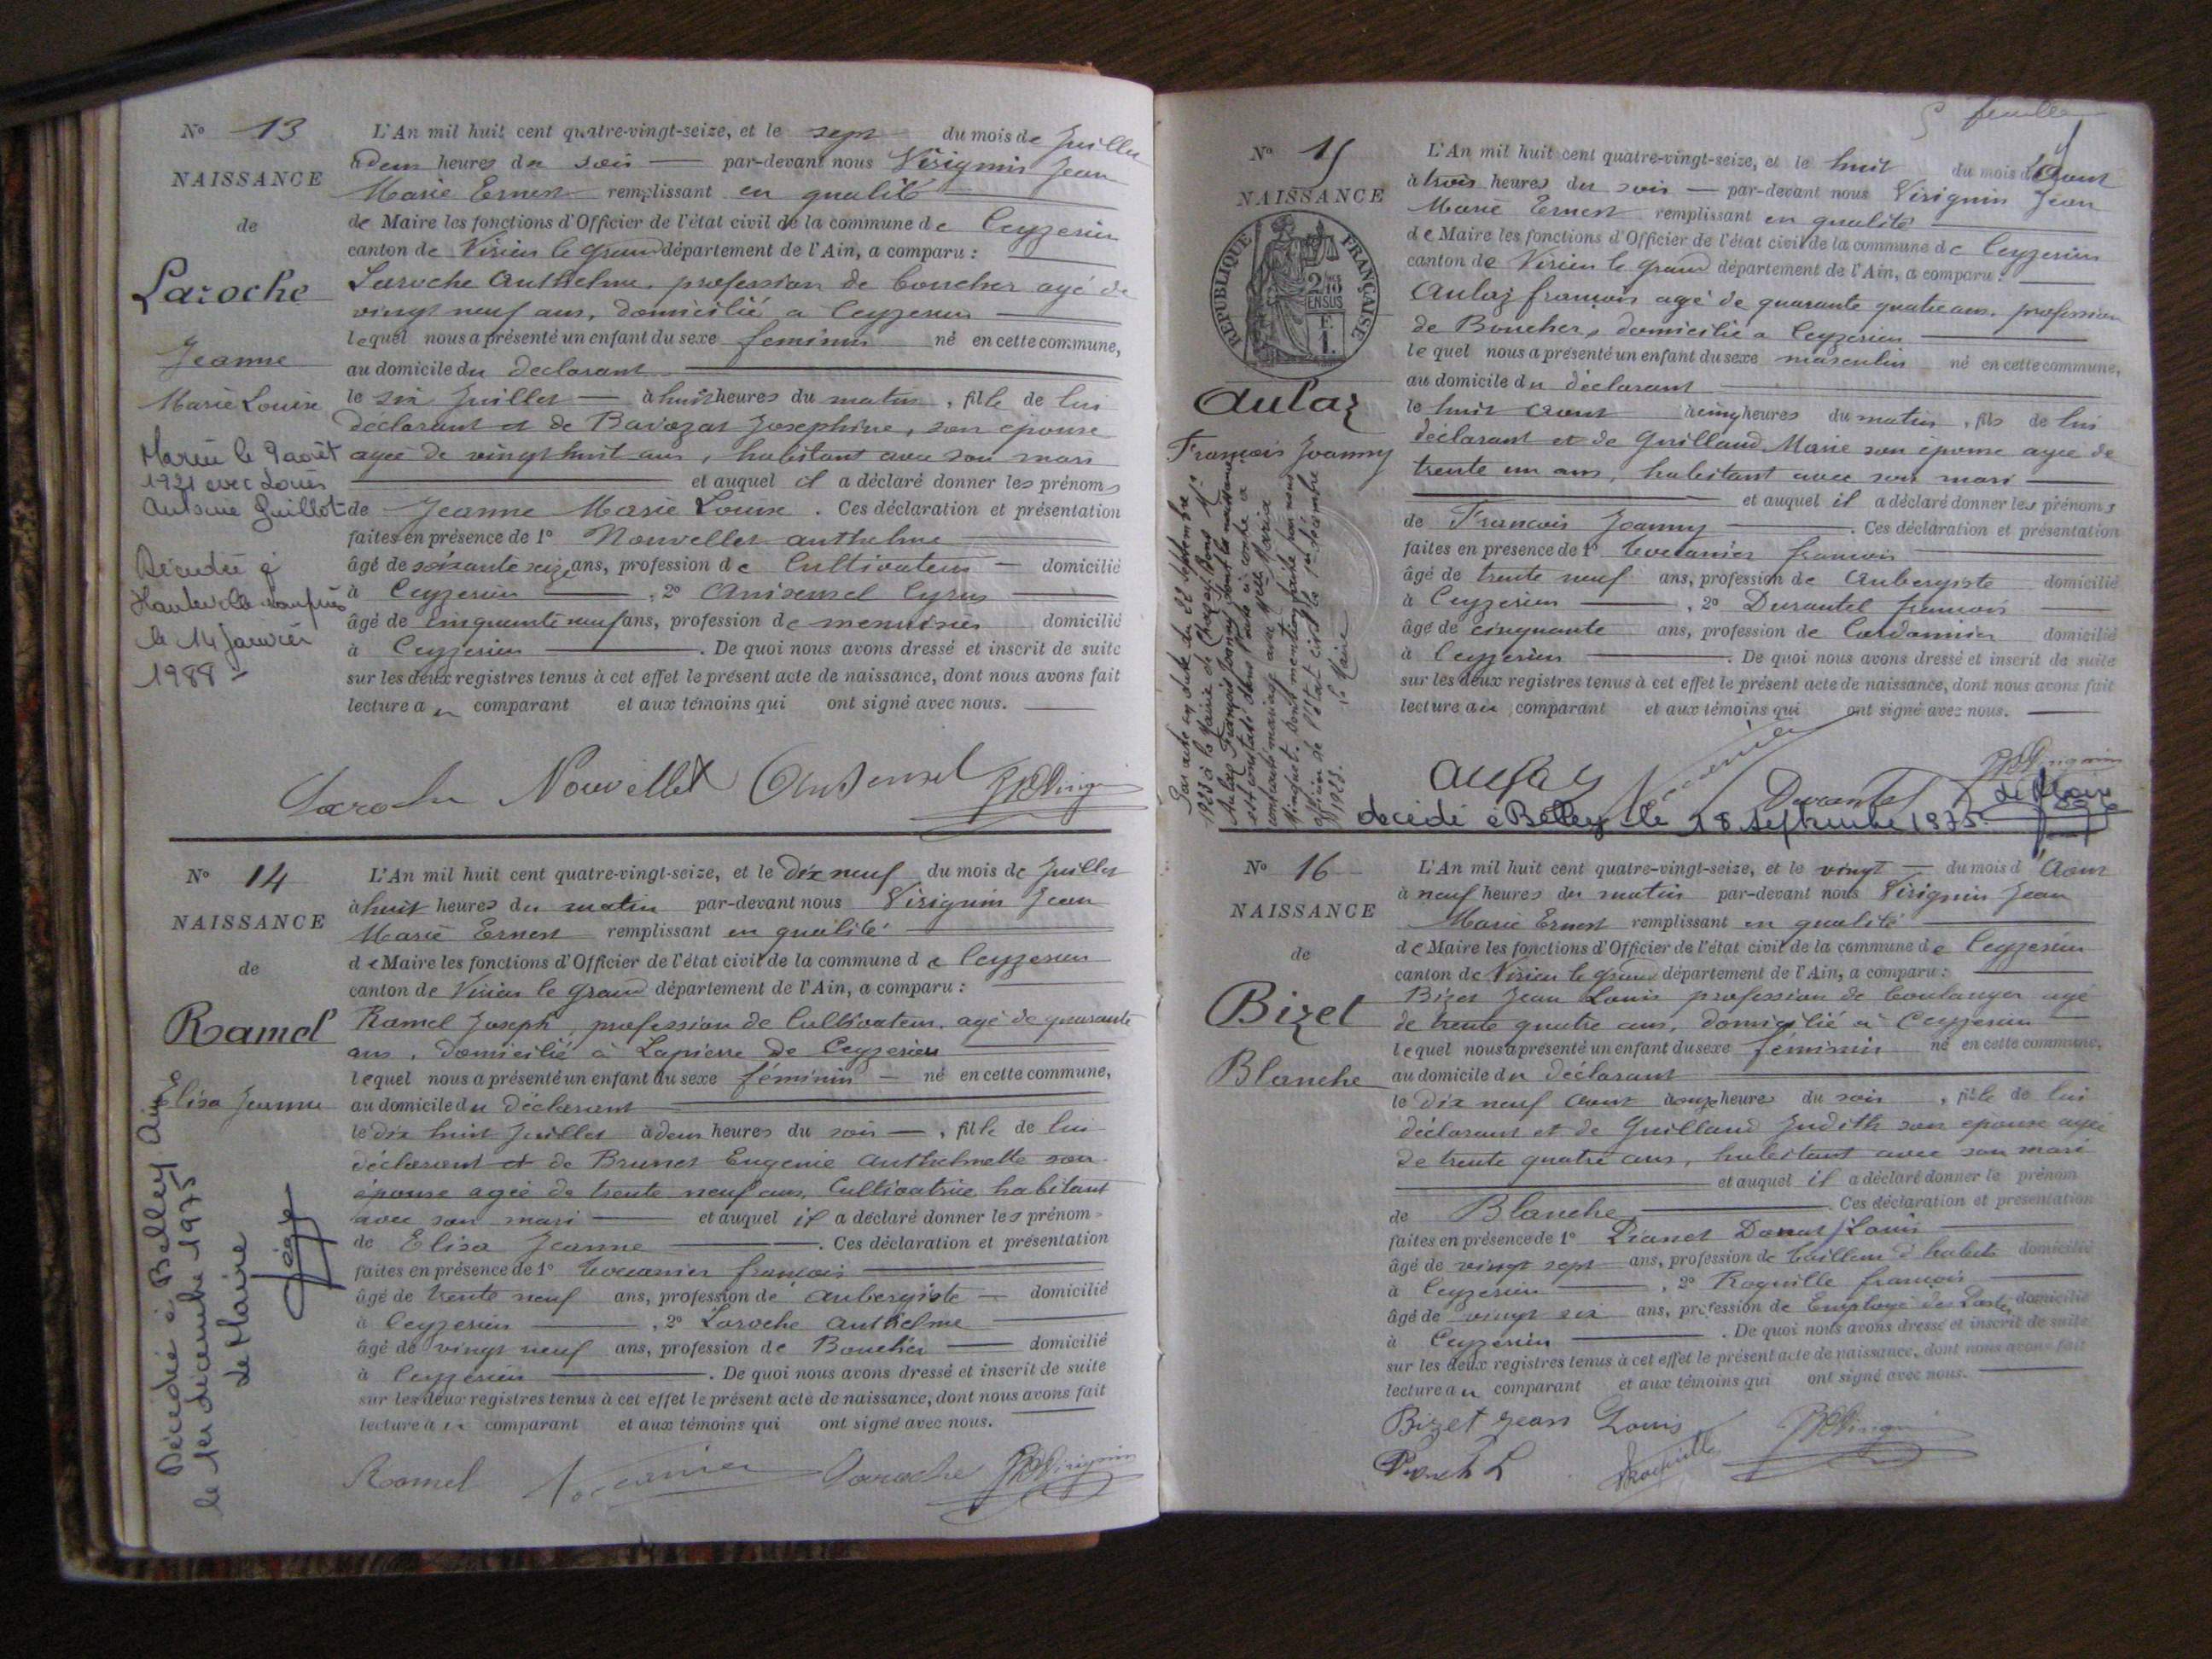 No 13
NAISSANCE
de
Laroche
Jeanne
Marie Louise
Mariée le 9 août
1921 avec Louis
Antoine Guillot
Décédée à
Hauteville-Lompnès
le 14 Janvier
1988
L'An mil huit cent quatre-vingt-seize, et le sept du mois de Juillet
à deux heures du soir par-devant nous Virignin Jean
Marie Ernest remplissant en qualité
de Maire les fonctions d'Officier de l'état civil de la commune de Ceyzerieu
canton de Virieu le grand département de l'Ain, a comparu :
Laroche Anthelme, profession de boucher agé de
vingt neuf ans, domicilié a Ceyzerieu
lequel nous a présenté un enfant du sexe feminin né en cette commune,
au domicile du déclarant
le six Juillet à huit heures du matin, fille de lui
déclarant et de Bavozat Josephine, son épouse
agée de vingt huit ans, habitant avec son mari
et auquel il a déclaré donner les prénoms
de Jeanne Marie Louise. Ces déclaration et présentation
faites en présence de 1° Nouvellet anthelme
âgé de soixante seize ans, profession de Cultivateur domicilié
à Ceyzerieu, 2° Ansemel Cyrus
âgé de cinquante neuf ans, profession de menuisier domicilié
à Ceyzerieu. De quoi nous avons dressé et inscrit de suite
sur les deux registres tenus à cet effet le présent acte de naissance, dont nous avons fait
lecture au comparant et aux témoins qui ont signé avec nous.
Laroche Nouvellet Ansemel Virignin
No 14
NAISSANCE
de
Ramel
Elisa Jeanne
Décédée à Belley Ain
le 1er décembre 1975
Le Maire
L'An mil huit cent quatre-vingt-seize, et le dix neuf du mois de Juillet
à huit heures du matin par-devant nous Virignin Jean
Marie Ernest remplissant en qualité
de Maire les fonctions d'Officier de l'état civil de la commune de Ceyzerieu
canton de Virieu le grand département de l'Ain, a comparu :
Ramel Joseph, profession de Cultivateur, agé de quarante
ans, domicilié à Lapierre de Ceyzerieu
lequel nous a présenté un enfant du sexe féminin né en cette commune,
au domicile du déclarant
le dix huit Juillet à deux heures du soir, fille de lui
déclarant et de Brunet Eugenie Anthelmette son
épouse agée de trente neuf ans, Cultivatrice habitant
avec son mari et auquel il a déclaré donner les prénoms
de Elisa Jeanne. Ces déclaration et présentation
faites en présence de 1° Tocanier francois
âgé de trente neuf ans, profession de aubergiste domicilié
à Ceyzerieu, 2° Laroche Anthelme
âgé de vingt neuf ans, profession de Boucher domicilié
à Ceyzerieu. De quoi nous avons dressé et inscrit de suite
sur les deux registres tenus à cet effet le présent acte de naissance, dont nous avons fait
lecture au comparant et aux témoins qui ont signé avec nous.
Ramel Tocanier Laroche Virignin
5 feuille
No 15
NAISSANCE
RÉPUBLIQUE FRANÇAISE
Aulaz
François Joanny
L'An mil huit cent quatre-vingt-seize, et le huit du mois d'Aout
à trois heures du soir par-devant nous Virignin Jean
Marie Ernest remplissant en qualité
de Maire les fonctions d'Officier de l'état civil de la commune de Ceyzerieu
canton de Virieu le grand département de l'Ain, a comparu :
Aulaz francois agé de quarante quatre ans, profession
de Boucher, domicilié a Ceyzerieu
lequel nous a présenté un enfant du sexe masculin né en cette commune,
au domicile du déclarant
le huit Aout à cinq heures du matin, fils de lui
déclarant et de Guilland Marie son épouse agée de
trente un ans, habitant avec son mari
et auquel il a déclaré donner les prénoms
de Francois Joanny. Ces déclaration et présentation
faites en présence de 1° Tocanier francois
âgé de trente neuf ans, profession de Aubergiste domicilié
à Ceyzerieu, 2° Durantel francois
âgé de cinquante ans, profession de Cordonnier domicilié
à Ceyzerieu. De quoi nous avons dressé et inscrit de suite
sur les deux registres tenus à cet effet le présent acte de naissance, dont nous avons fait
lecture au comparant et aux témoins qui ont signé avec nous.
Aulaz Tocanier Durantel Virignin
décédé à Belley le 18 septembre 1975. Le Maire
No 16
NAISSANCE
de
Bizet
Blanche
L'An mil huit cent quatre-vingt-seize, et le vingt du mois d'Aout
à neuf heures du matin par-devant nous Virignin Jean
Marie Ernest remplissant en qualité
de Maire les fonctions d'Officier de l'état civil de la commune de Ceyzerieu
canton de Virieu le grand département de l'Ain, a comparu :
Bizet Jean Louis profession de boulanger agé
de trente quatre ans, domicilié à Ceyzerieu
lequel nous a présenté un enfant du sexe féminin né en cette commune,
au domicile du déclarant
le dix neuf Aout à onze heures du soir, fille de lui
déclarant et de Guilland Judith son épouse agée
de trente quatre ans, habitant avec son mari
et auquel il a déclaré donner le prénom
de Blanche. Ces déclaration et présentation
faites en présence de 1° Donat Louis
âgé de vingt sept ans, profession de tailleur d'habits domicilié
à Ceyzerieu, 2° francois
âgé de vingt six ans, profession de Employé des Postes domicilié
à Ceyzerieu. De quoi nous avons dressé et inscrit de suite
sur les deux registres tenus à cet effet le présent acte de naissance, dont nous avons fait
lecture au comparant et aux témoins qui ont signé avec nous.
Bizet Jean Louis Virignin